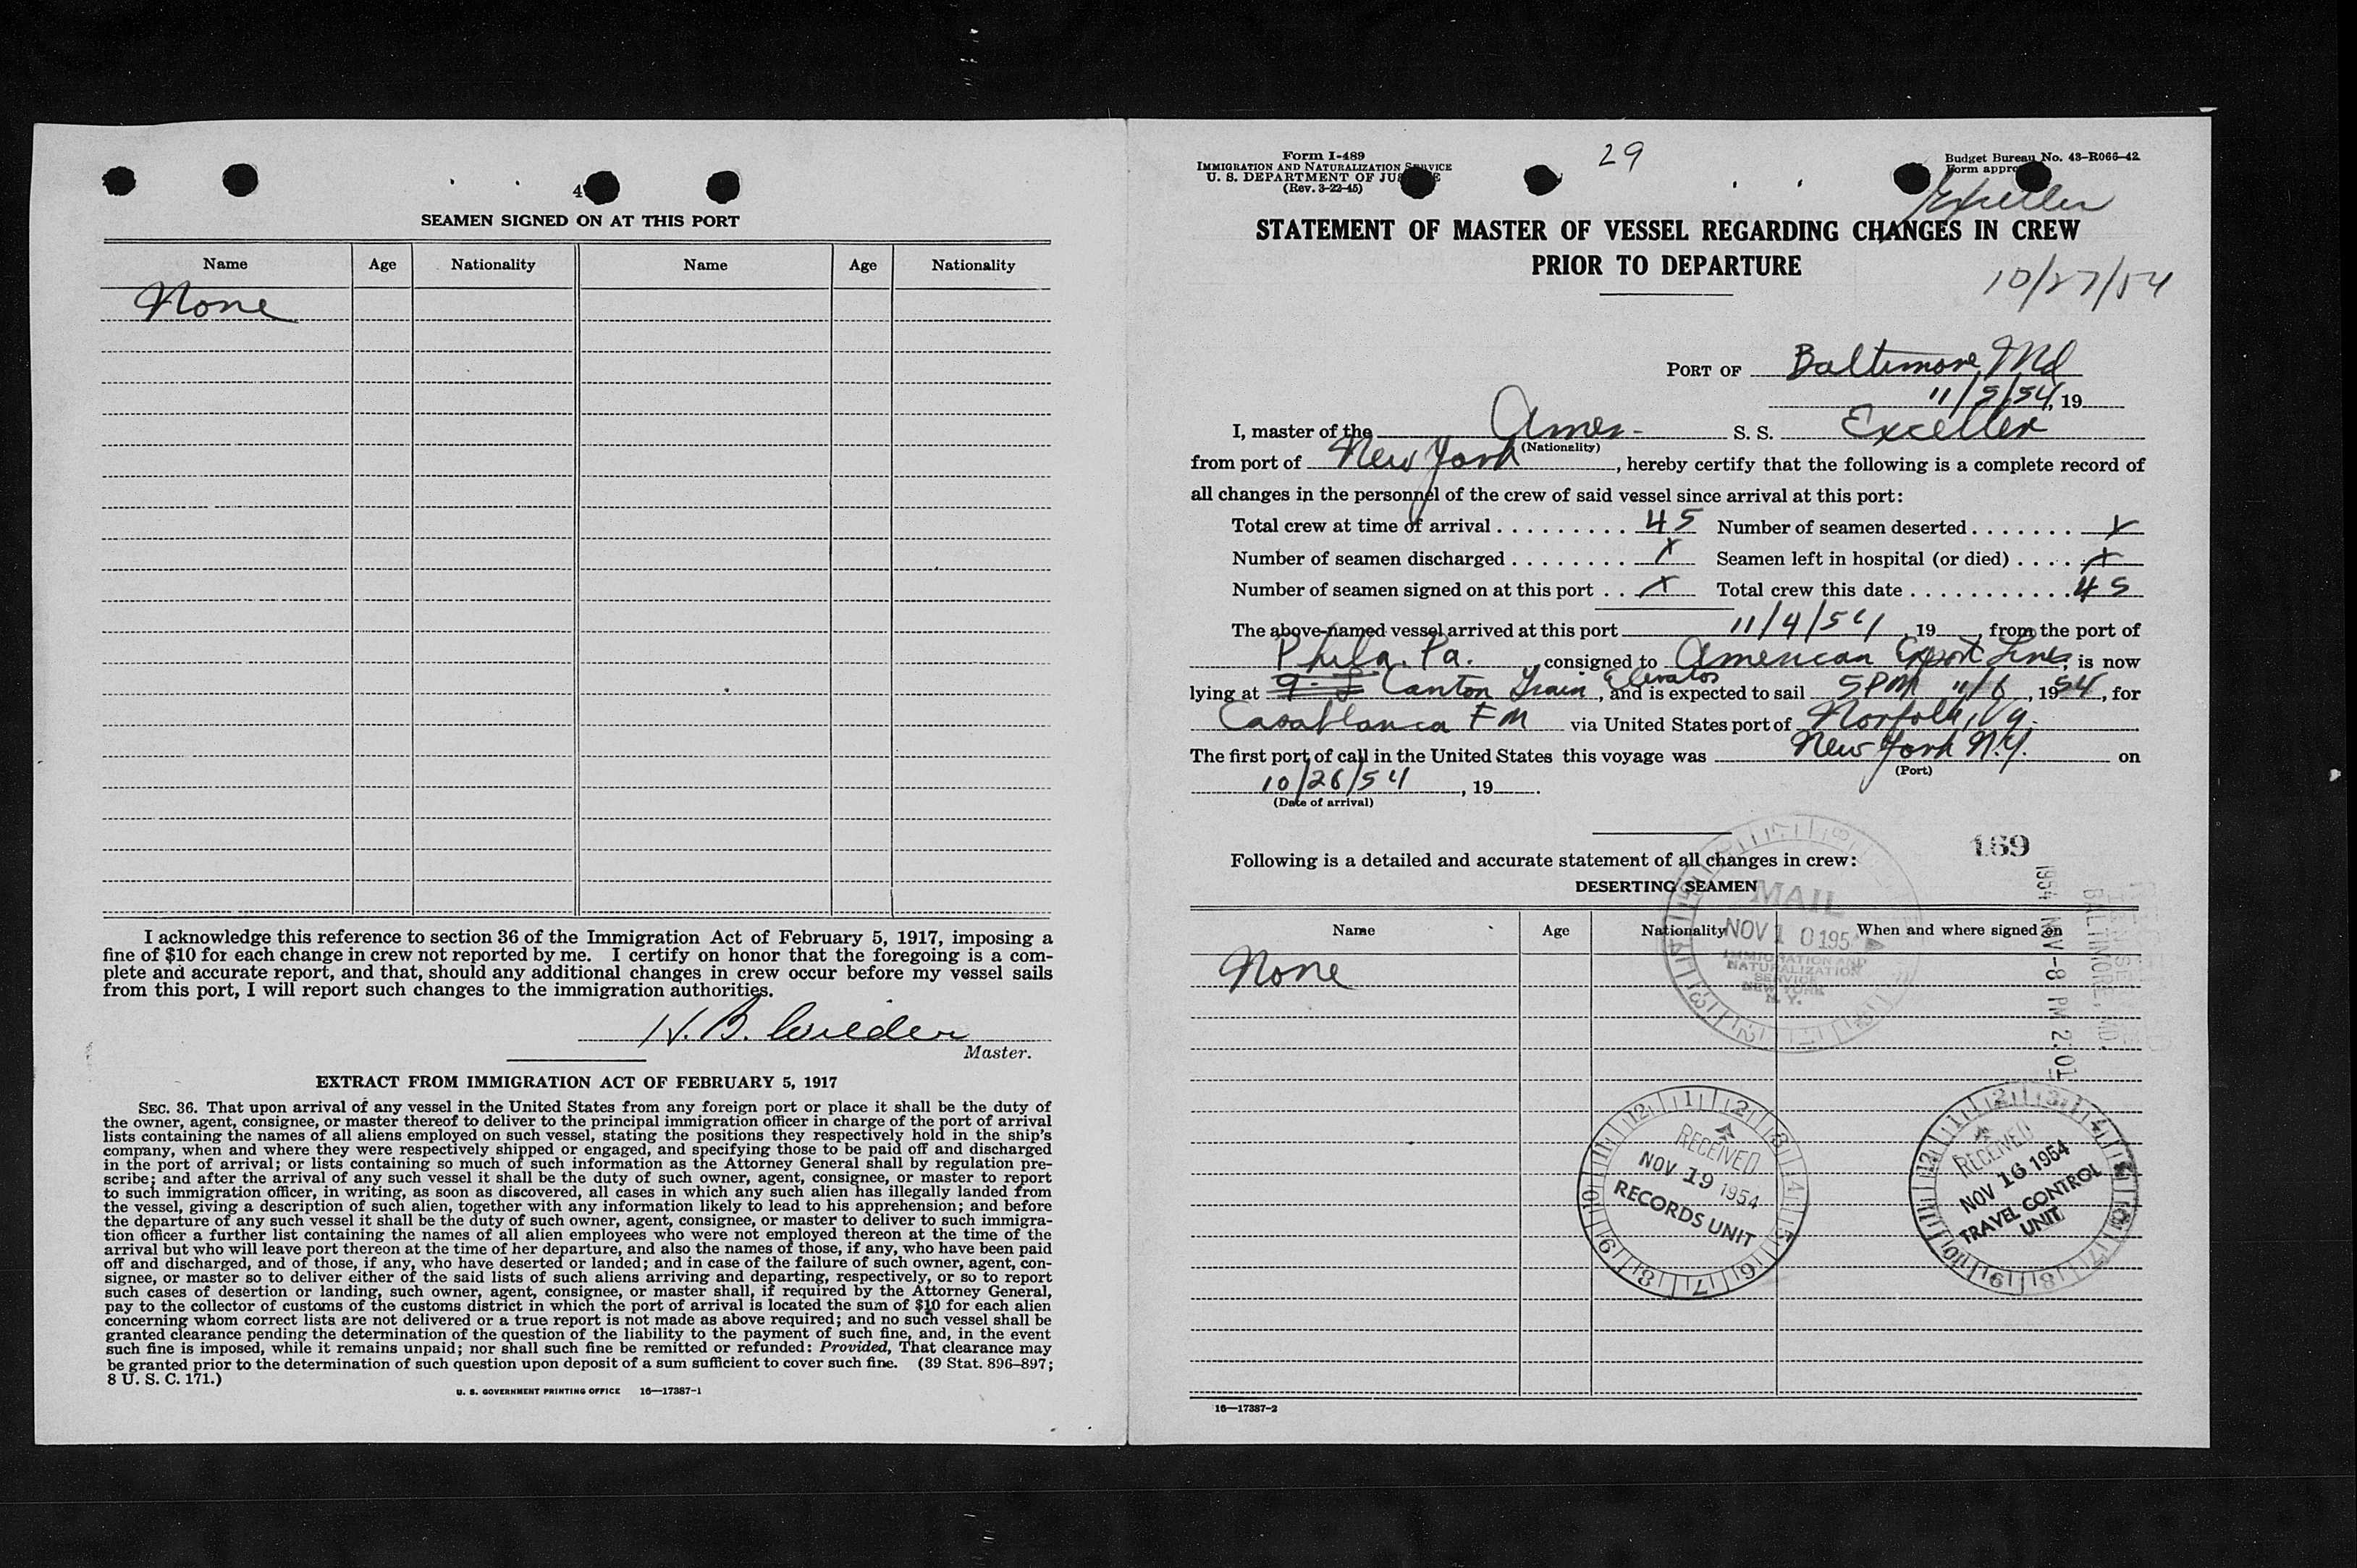 4
SEAMEN SIGNED ON AT THIS PORT
Name Age Nationality Name Age Nationality
None
I acknowledge this reference to section 36 of the Immigration Act of February 5, 1917, imposing a
fine of $10 for each change in crew not reported by me. I certify on honor that the foregoing is a com-
plete and accurate report, and that, should any additional changes in crew occur before my vessel sails
from this port, I will report such changes to the immigration authorities.
H. B. Wieder
Master.
EXTRACT FROM IMMIGRATION ACT OF FEBRUARY 5, 1917
SEC. 36. That upon arrival of any vessel in the United States from any foreign port or place it shall be the duty of
the owner, agent, consignee, or master thereof to deliver to the principal immigration officer in charge of the port of arrival
lists containing the names of all aliens employed on such vessel, stating the positions they respectively hold in the ship's
company, when and where they were respectively shipped or engaged, and specifying those to be paid off and discharged
in the port of arrival; or lists containing so much of such information as the Attorney General shall by regulation pre-
scribe; and after the arrival of any such vessel it shall be the duty of such owner, agent, consignee, or master to report
to such immigration officer, in writing, as soon as discovered, all cases in which any such alien has illegally landed from
the vessel, giving a description of such alien, together with any information likely to lead to his apprehension; and before
the departure of any such vessel it shall be the duty of such owner, agent, consignee, or master to deliver to such immigra-
tion officer a further list containing the names of all alien employees who were not employed thereon at the time of the
arrival but who will leave port thereon at the time of her departure, and also the names of those, if any, who have been paid
off and discharged, and of those, if any, who have deserted or landed; and in case of the failure of such owner, agent, con-
signee, or master so to deliver either of the said lists of such aliens arriving and departing, respectively, or so to report
such cases of desertion or landing, such owner, agent, consignee, or master shall, if required by the Attorney General,
pay to the collector of customs of the customs district in which the port of arrival is located the sum of $10 for each alien
concerning whom correct lists are not delivered or a true report is not made as above required; and no such vessel shall be
granted clearance pending the determination of the question of the liability to the payment of such fine, and, in the event
such fine is imposed, while it remains unpaid; nor shall such fine be remitted or refunded: Provided, That clearance may
be granted prior to the determination of such question upon deposit of a sum sufficient to cover such fine. (39 Stat. 896-897;
8 U. S. C. 171.)
U. S. GOVERNMENT PRINTING OFFICE 16—17387-1
Form I-489
IMMIGRATION AND NATURALIZATION SERVICE
U. S. DEPARTMENT OF JUSTICE
(Rev. 3-22-45)
29
Budget Bureau No. 43-R066-42
Form appro
Exceller
STATEMENT OF MASTER OF VESSEL REGARDING CHANGES IN CREW
PRIOR TO DEPARTURE
10/27/54
PORT OF Baltimore, Md
11/5/54, 19
I, master of the Amer. S. S. Exceller
(Nationality)
from port of New York, hereby certify that the following is a complete record of
all changes in the personnel of the crew of said vessel since arrival at this port:
Total crew at time of arrival . . . . . . . . . . 45 Number of seamen deserted . . . . . . . X
Number of seamen discharged . . . . . . . . X Seamen left in hospital (or died) . . . . X
Number of seamen signed on at this port . . X Total crew this date . . . . . . . . . . . 45
The above-named vessel arrived at this port 11/4/54, 19, from the port of
Phila. Pa., consigned to American Export Lines, is now
lying at Canton Grain Elevator, and is expected to sail 5PM 11/6, 1954, for
Casablanca FM via United States port of Norfolk, Va.
The first port of call in the United States this voyage was New York N.Y. on
(Port)
10/26/54, 19.
(Date of arrival)
169
Following is a detailed and accurate statement of all changes in crew:
DESERTING SEAMEN
Name Age Nationality When and where signed on
None
MAIL
NOV 10 195
IMMIGRATION AND
NATURALIZATION
SERVICE
NEW YORK
N. Y.
1954 NOV-8 PM 2:01
BALTIMORE, MD.
RECEIVED
NOV 19 1954
RECORDS UNIT
RECEIVED
NOV 16 1954
TRAVEL CONTROL
UNIT
16—17387-2